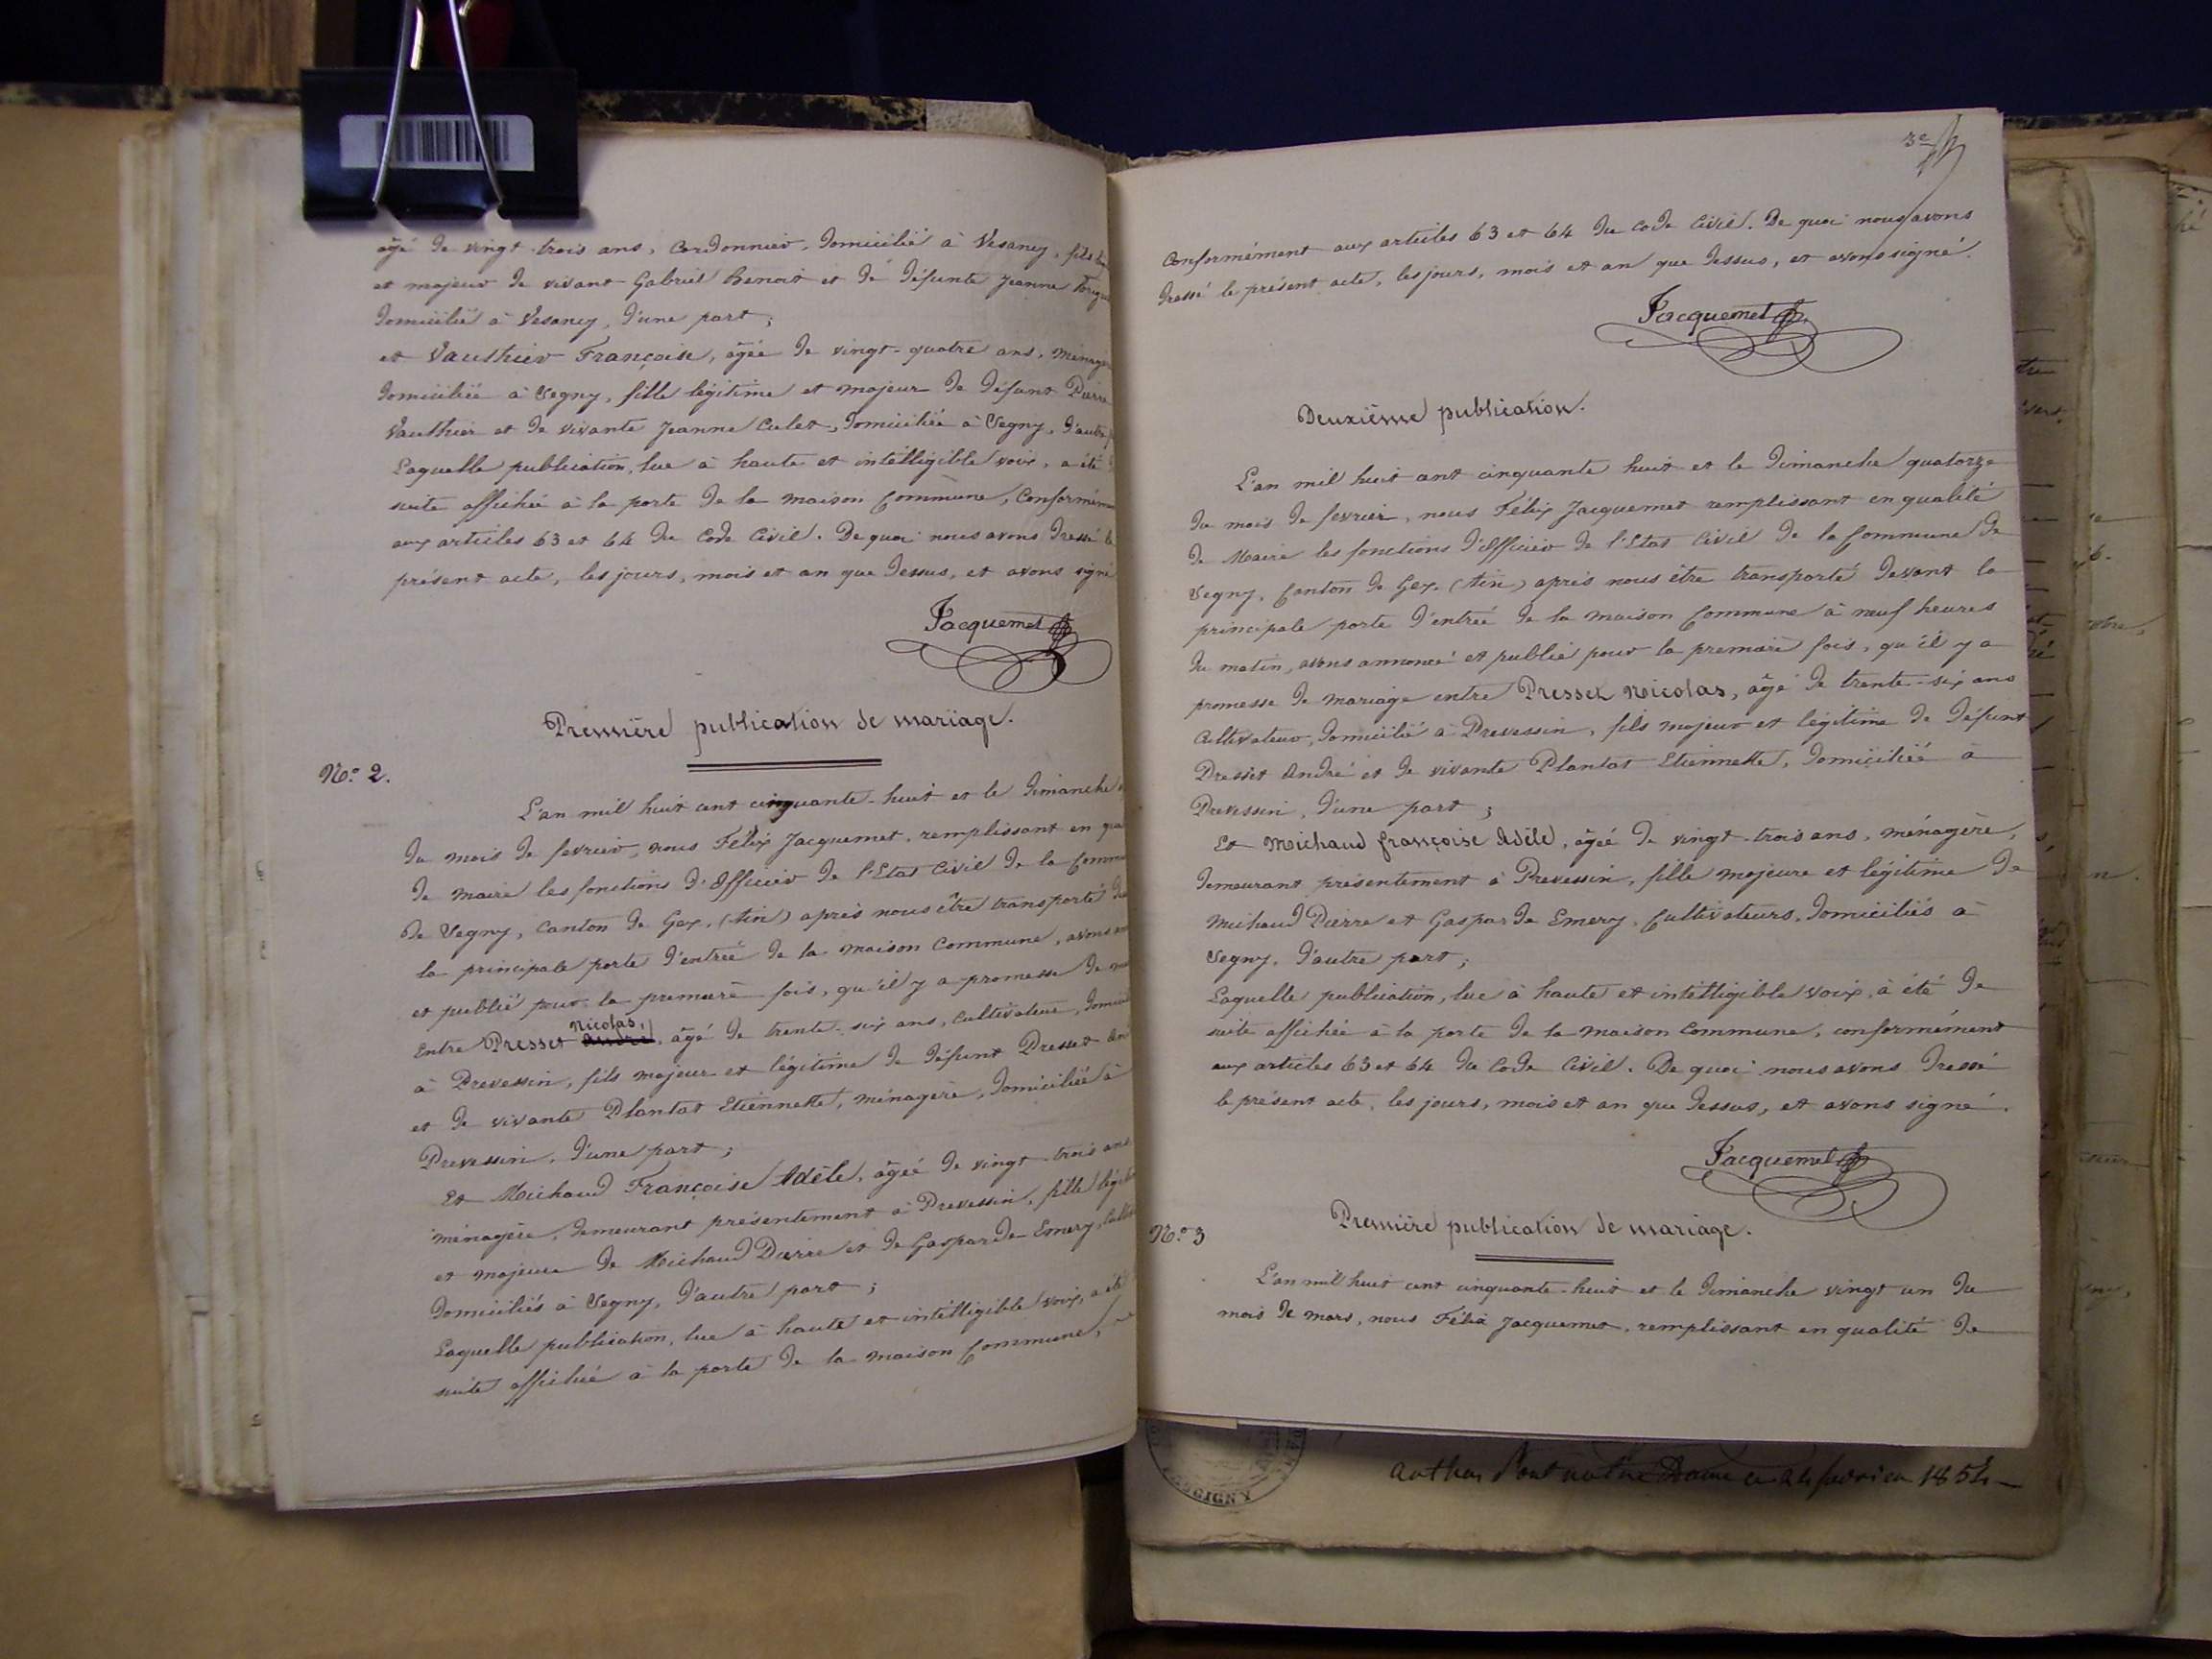 âgé de vingt-trois ans, Cordonnier, domicilié à Vesancy, fils
et majeur de vivant Gabriel Benoit et de défunte Jeanne
domicilié à Vesancy, d'une part ;
et Vauthier Françoise, âgée de vingt-quatre ans, ménag
domiciliée à Segny, fille légitime et majeur de défunt Pierre
Vauthier et de vivante Jeanne Culet, domiciliée à Segny, d'autre
Laquelle publication, lue à haute et intelligible voix, a été
suite affichée à la porte de la maison Commune, Conformém
aux articles 63 et 64 du Code Civil. De quoi nous avons dressé le
présent acte, les jours, mois et an que dessus, et avons signé
Jacquemet
Première publication de mariage.
N.° 2.
L'an mil huit cent cinquante-huit et le dimanche
du mois de fevrier, nous Félix Jacquemet, remplissant en qua
de maire les fonctions d'Officier de l'Etat Civil de la Commu
de Segny, Canton de Gex, (Ain) après nous être transporté de
la principale porte d'entrée de la maison Commune, avons an
et publié pour la premiere fois, qu'il y a promesse de m
Entre Presset Nicolas, âgé de trente-six ans, cultivateur, domici
à Prevessin, fils majeur et légitime de défunt Presset An
et de vivante Plantat Etiennette, ménagère, domiciliée à
Prevessin, d'une part ;
Et Michaud Françoise Adèle, âgée de vingt-trois ans
ménagère, demeurant présentement à Prevessin, fille légit
et majeure de Michaud Pierre et de Gasparde Emery, Cultiv
domiciliés à Segny, d'autre part ;
Laquelle publication, lue à haute et intelligible voix, a été
suite affichée à la porte de la maison Commune,
3e
Conformément aux articles 63 et 64 du Code Civil. De quoi nous avons
dressé le présent acte, les jours, mois et an que dessus, et avons signé.
Jacquemet
Deuxième publication.
L'an mil huit cent cinquante huit et le dimanche quatorze
du mois de fevrier, nous Félix Jacquemet remplissant en qualité
de Maire les fonctions d'Officier de l'Etat Civil de la Commune de
Segny, Canton de Gex, (Ain) après nous être transporté devant la
principale porte d'entrée de la maison Commune à neuf heures
du matin, avons annoncé et publié pour la premiere fois, qu'il y a
promesse de mariage entre Presset Nicolas, âgé de trente-six ans
Cultivateur, domicilié à Prevessin, fils majeur et légitime de défunt
Presset André et de vivante Plantat Etiennette, domiciliée à
Prevessin, d'une part ;
Et Michaud françoise Adèle, âgée de vingt-trois ans, ménagère,
demeurant présentement à Prevessin, fille majeure et légitime de
Michaud Pierre et Gasparde Emery, Cultivateurs, domiciliés à
Segny, d'autre part ;
Laquelle publication, lue à haute et intelligible voix, à été de
suite affichée à la porte de la maison Commune, conformément
aux articles 63 et 64 du Code Civil. De quoi nous avons dressé
le présent acte, les jours, mois et an que dessus, et avons signé.
Jacquemet
N.° 3
Première publication de mariage.
L'an mil huit cent cinquante-huit et le dimanche vingt un du
mois de mars, nous Félix Jacquemet, remplissant en qualité de
fevrier 1854